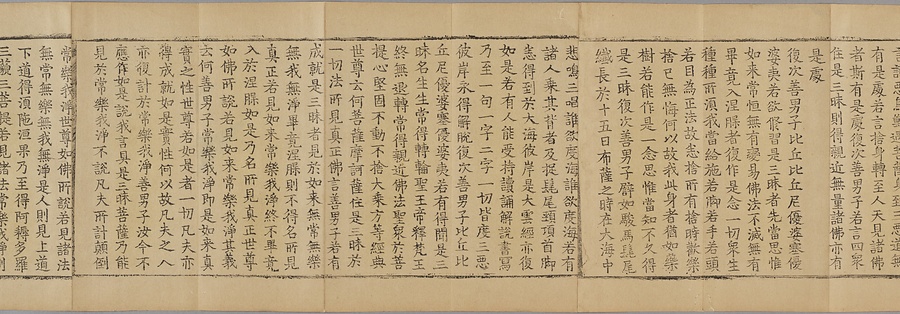 有是處若言捨身轉至人天見諸佛
者斯有是處復次善男子若言四衆
住是三昧則得親近無量諸佛亦有
是處
復次善男子比丘比丘尼優婆塞優
婆夷若欲修習是三昧者先當思惟
如来常恒無有變易佛法不滅無有
畢竟入涅脎者復作是念一切衆生
種種所須我當給施若脚若手若頭
若目為正法故悉捨所有捨時歡樂
捨已無悔何以故我此身者猶如藥
樹若能作是一念思惟當知不久得
是三昧復次善男子譬如駿馬髦尾
纖長於十五日布薩之時在大海中
悲鳴三唱誰欲度海誰欲度海若有
諸人乘其背者及捉髦尾頸項首脚
悉得到於大海彼岸是大雲經亦復
如是若有人能受持讀誦解說書寫
乃至一句一字二字一切皆度三惡
彼岸永得解脫復次善男子比丘比
丘尼優婆塞優婆夷若有得聞是三
昧名生生常得轉輪聖王帝釋梵王
終無退轉常得親近佛法聖衆於菩
提心堅固不動不捨大乘方等經典
世尊云何菩薩摩訶薩住是三昧於
一切法所見真正佛言善男子若有
成就是三昧者見於如来無常無樂
無我無淨畢竟涅脎則不得名所見
真正若見如来常樂我淨終不畢竟
入於涅脎如是乃名所見真正世尊
如佛所說若見如来常樂我淨其義
云何善男子常樂我淨即是如来真
實之性世尊若如是者一切凡夫亦
得成就如是實性何以故凡夫之人
亦復計於常樂我淨善男子汝今不
應作如是說我言具是三昧菩薩乃能
見於常樂我淨不說凡夫所計顛倒
常樂我淨世尊如佛所說若見諸法
無常無樂無我無淨是人則見上道
下道得須陁洹果乃至得阿耨多羅
三藐三菩提若見諸法常樂我淨